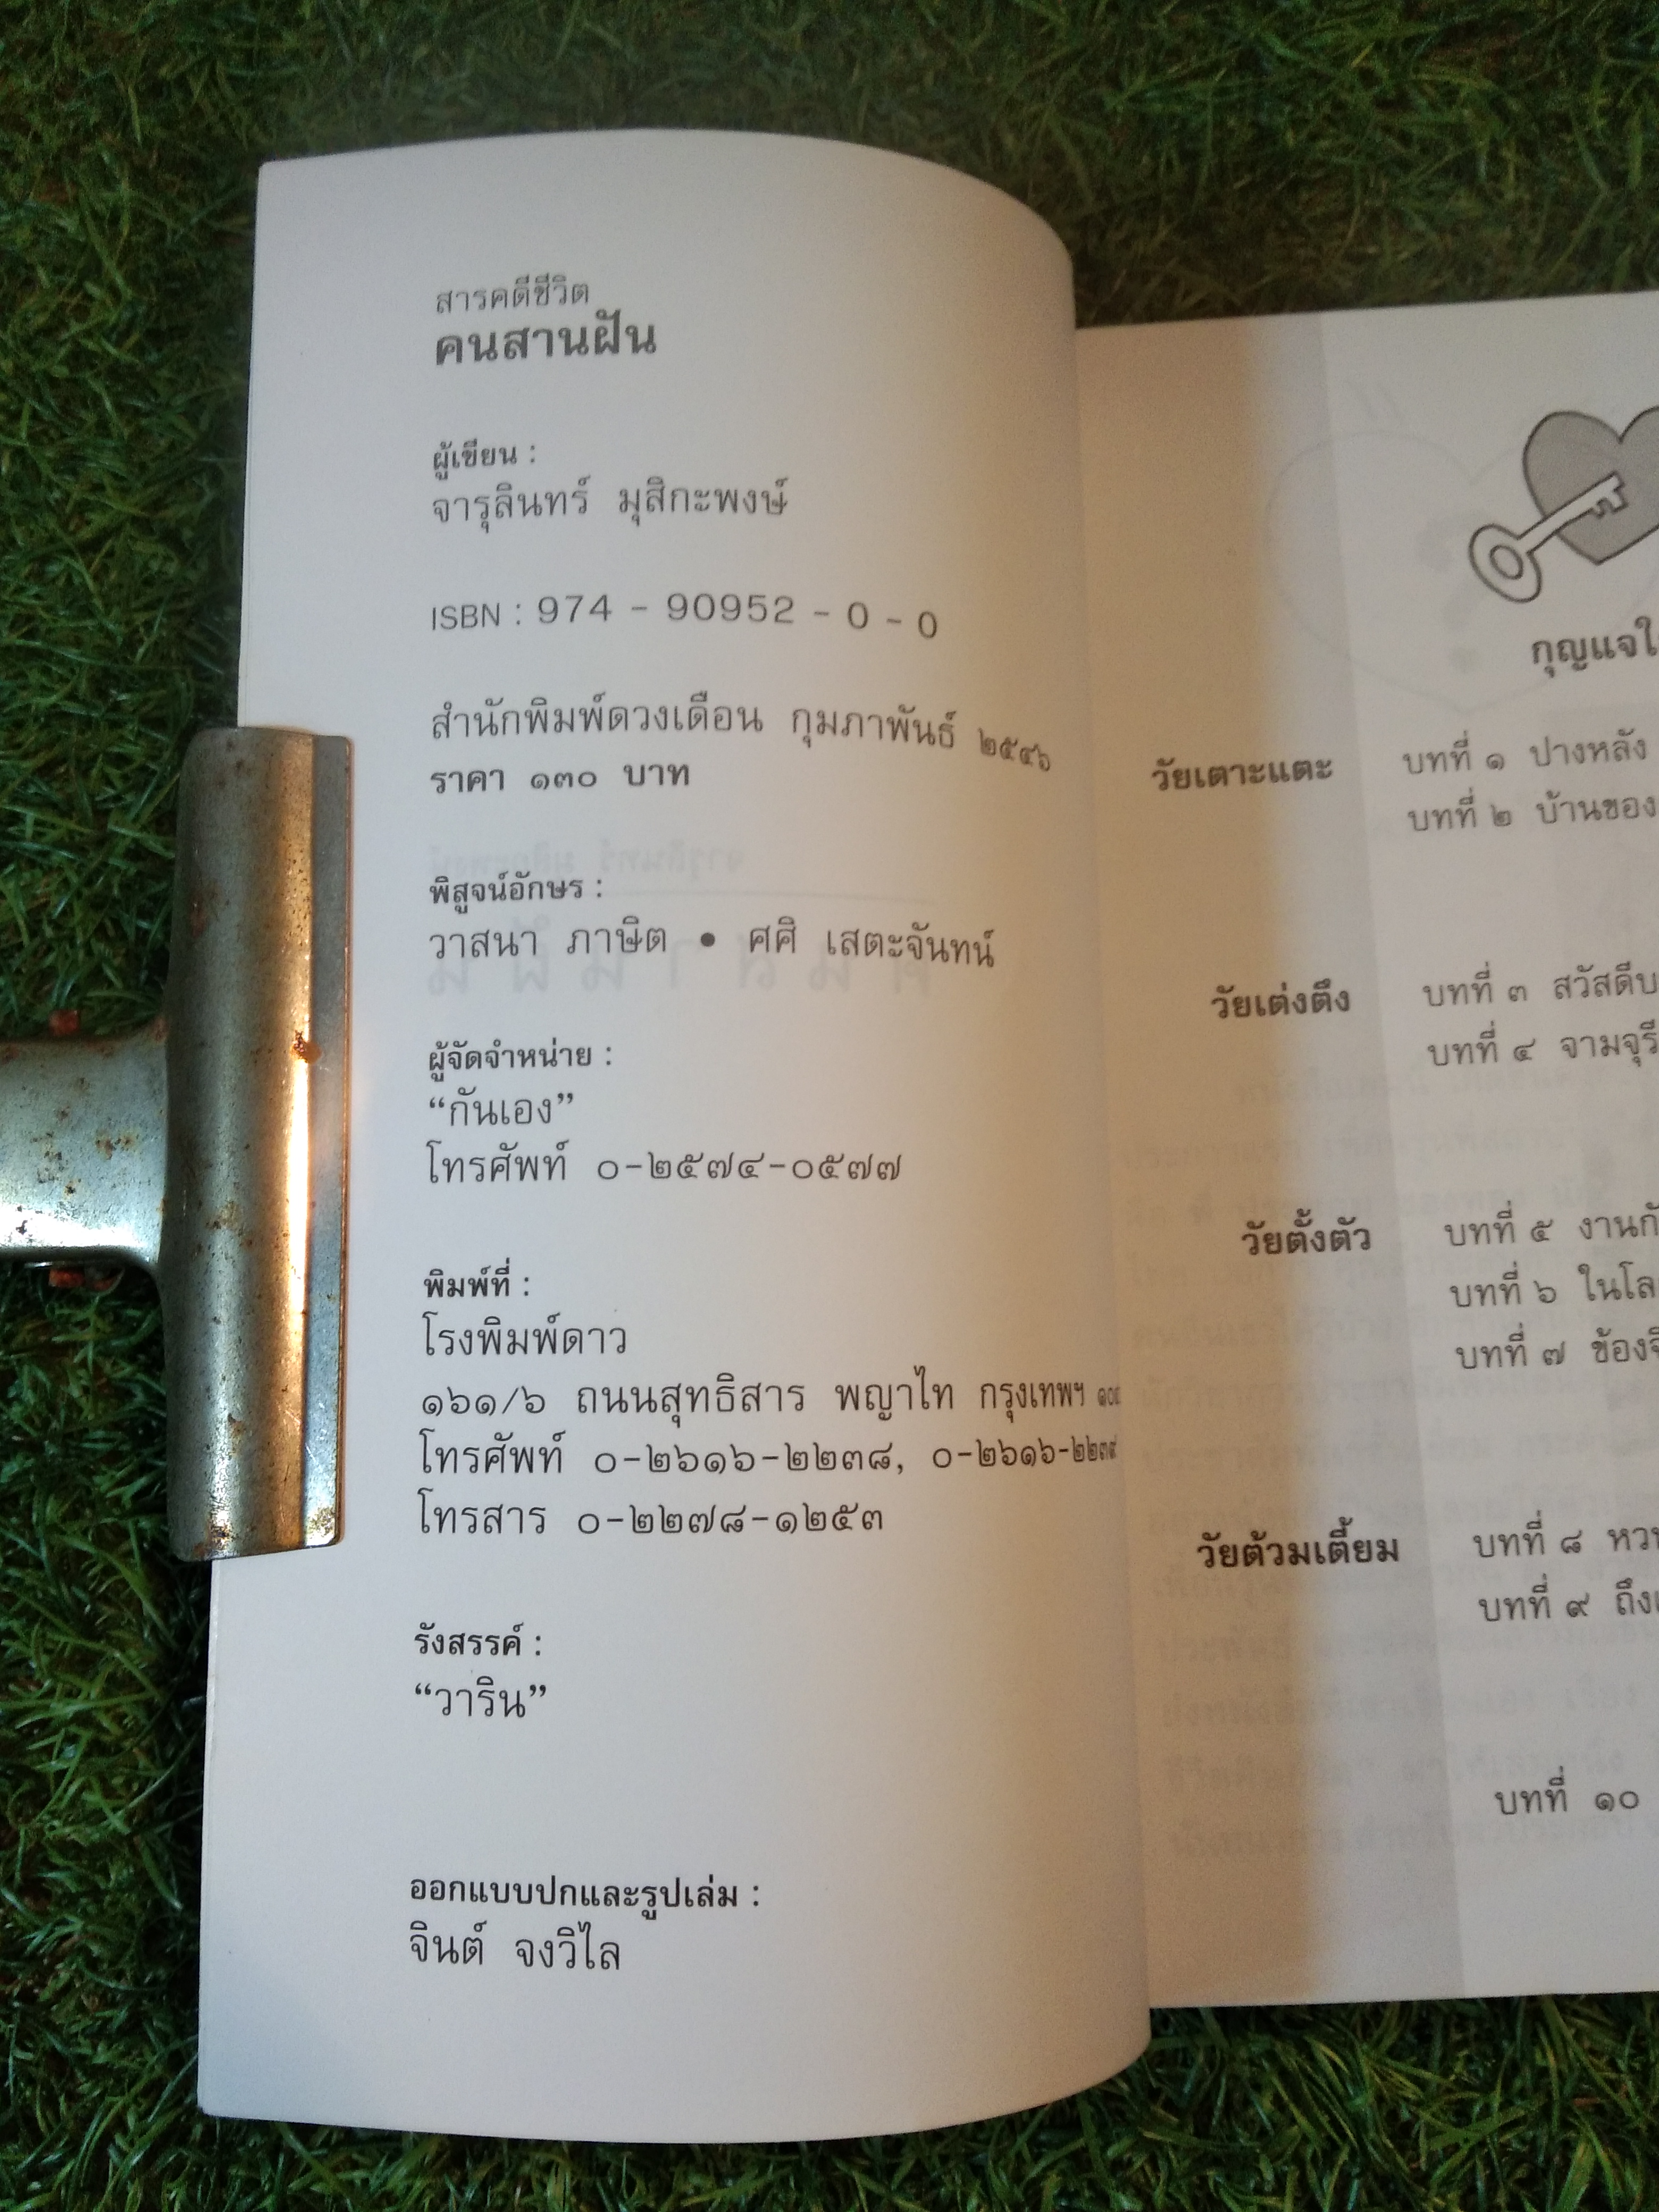 สารคดีชีวิต
คนสานฝัน
ผู้เขียน :
จารุลินทร์ มุสิกะพงษ์
ISBN : 974 - 90952 - 0 - 0
สำนักพิมพ์ดวงเดือน กุมภาพันธ์ ๒๕๔๖
ราคา ๑๓๐ บาท
พิสูจน์อักษร :
วาสนา ภาษิต • ศศิ เสตะจันทน์
ผู้จัดจำหน่าย :
“กันเอง”
โทรศัพท์ ๐-๒๕๗๔-๐๕๗๗
พิมพ์ที่ :
โรงพิมพ์ดาว
๑๖๑/๖ ถนนสุทธิสาร พญาไท กรุงเทพฯ
โทรศัพท์ ๐-๒๖๑๖-๒๒๓๘, ๐-๒๖๑๖-๒๒๓๙
โทรสาร ๐-๒๒๗๘-๑๒๕๓
รังสรรค์ :
“วาริน”
ออกแบบปกและรูปเล่ม :
จินต์ จงวิไล
กุญแจ
วัยเตาะแตะ บทที่ ๑ ปางหลัง
บทที่ ๒ บ้านของ
วัยเต่งตึง บทที่ ๓ สวัสดี
บทที่ ๔ จามจุรี
วัยตั้งตัว บทที่ ๕ งาน
บทที่ ๖ ใน
บทที่ ๗ ข้อง
วัยต้วมเตี้ยม บทที่ ๘
บทที่ ๙ ถึง
บทที่ ๑๐